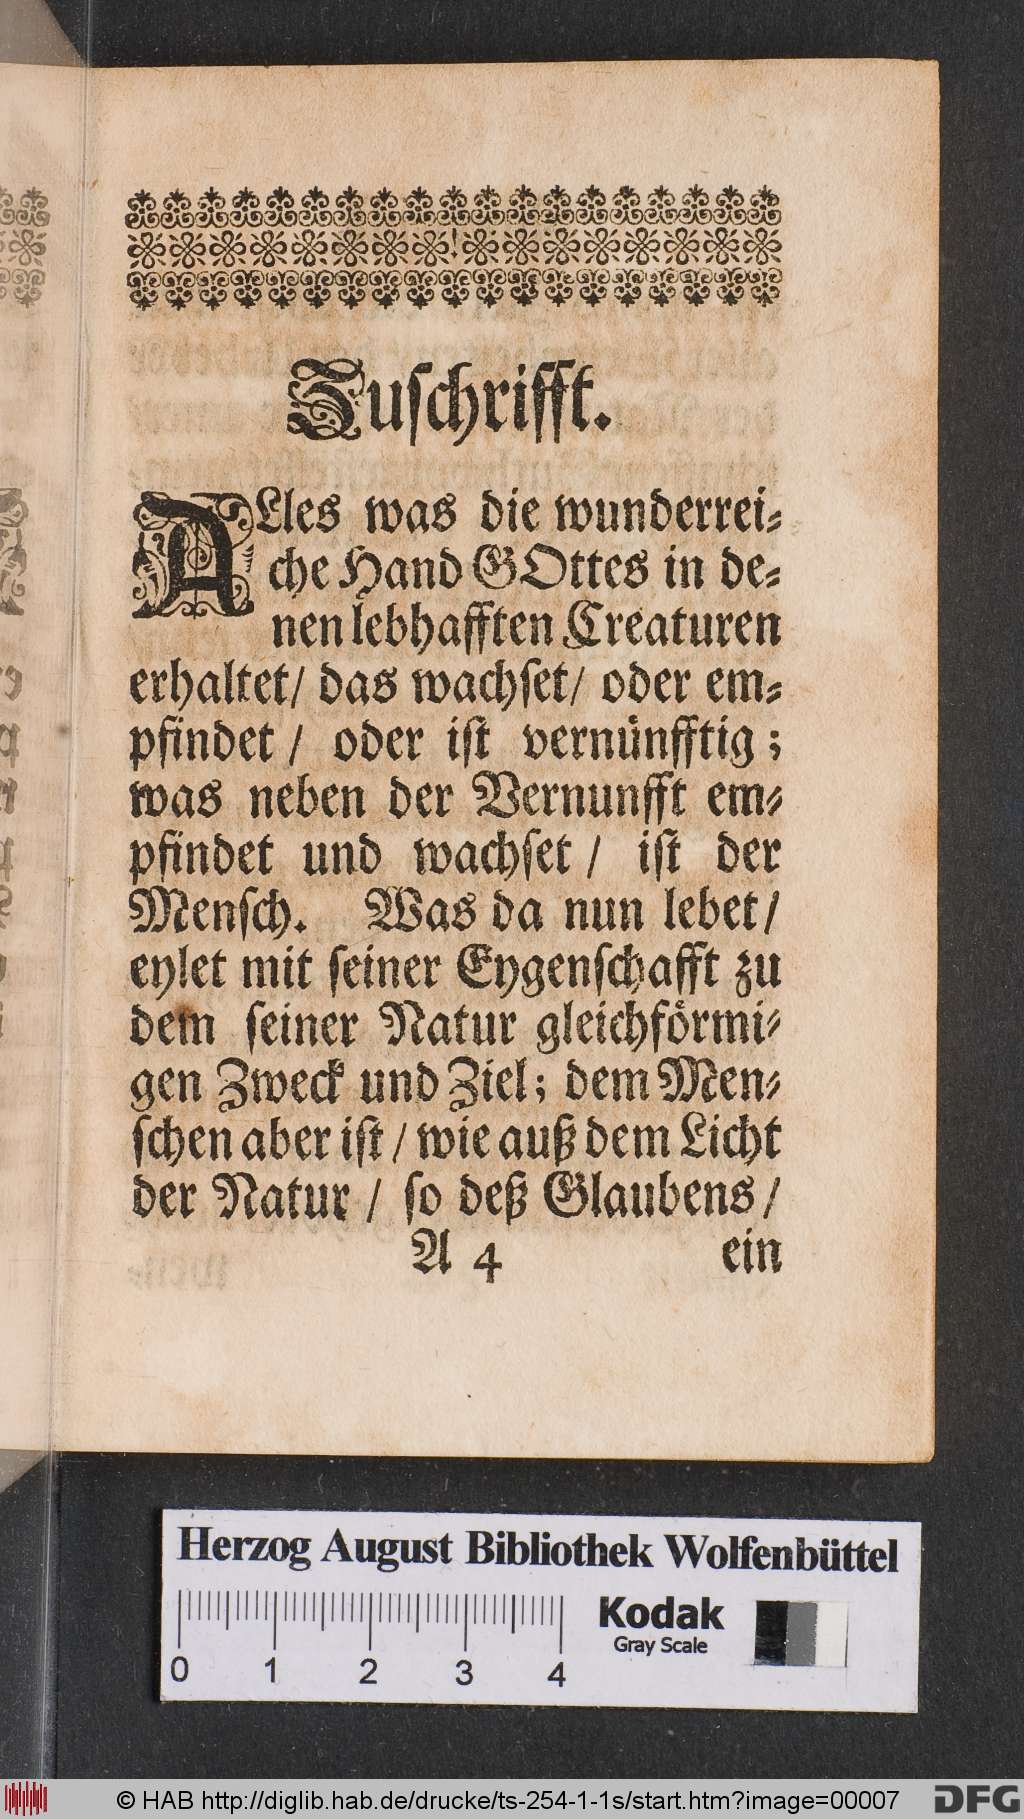 Zuschrifft.
ALles was die wunderrei⸗
che Hand GOttes in de⸗
nen lebhafften Creaturen
erhaltet/ das wachset/ oder em⸗
pfindet / oder ist vernünfftig ;
was neben der Vernunfft em⸗
pfindet und wachset / ist der
Mensch. Was da nun lebet/
eylet mit seiner Eygenschafft zu
dem seiner Natur gleichförmi⸗
gen Zweck und Ziel; dem Men⸗
schen aber ist / wie auß dem Licht
der Natur / so deß Glaubens /
A 4 ein
Herzog August Bibliothek Wolfenbüttel
Kodak
Gray Scale
0 1 2 3 4
© HAB http://diglib.hab.de/drucke/ts-254-1-1s/start.htm?image=00007
DFG